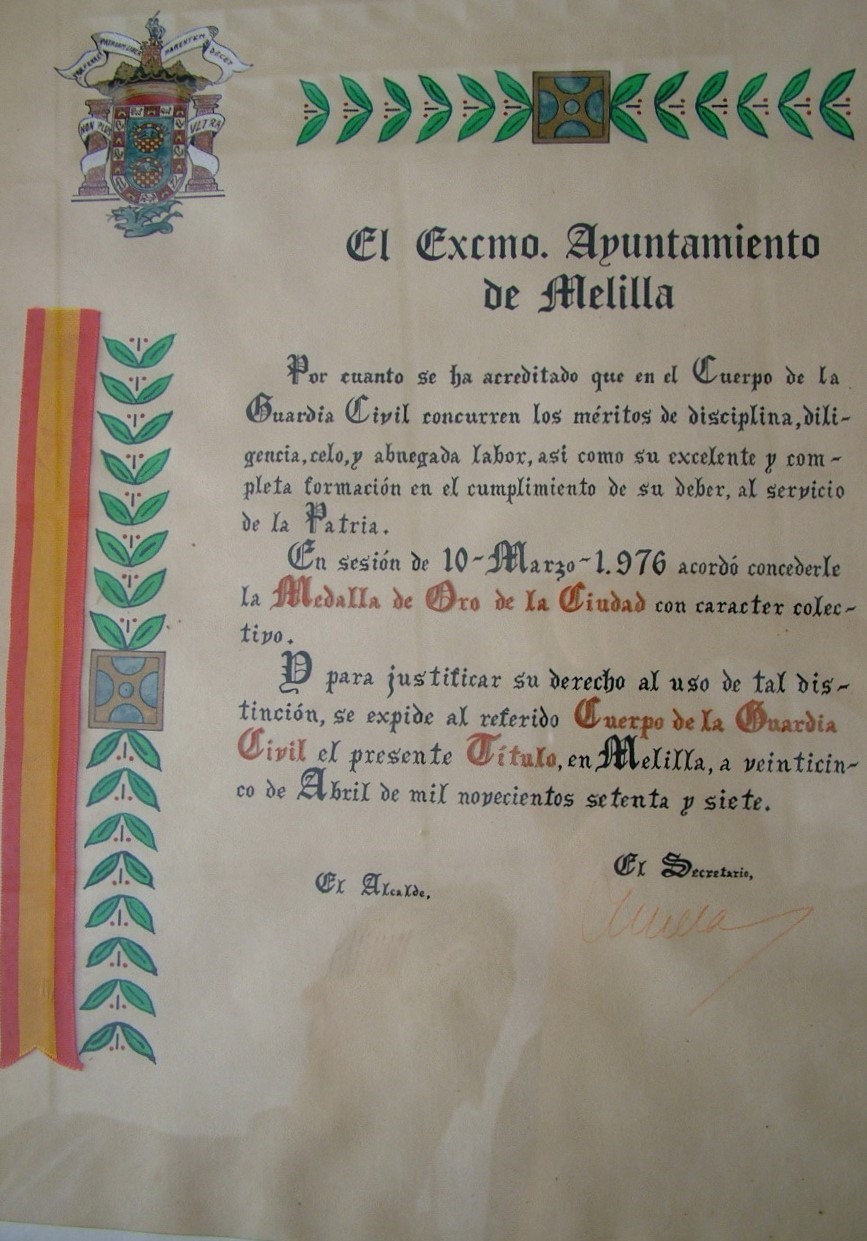 PRAEFERRE PATRIAM LIBERIS PARENTEM DECET
NON PLUS ULTRA
El Excmo. Ayuntamiento
de Melilla
Por cuanto se ha acreditado que en el Cuerpo de la
Guardia Civil concurren los méritos de disciplina, dili-
gencia, celo, y abnegada labor, asi como su excelente y com-
pleta formación en el cumplimiento de su deber, al servicio
de la Patria.
En sesión de 10-Marzo-1.976 acordó concederle
la Medalla de Oro de la Ciudad con caracter colec-
tivo.
Y para justificar su derecho al uso de tal dis-
tinción, se expide al referido Cuerpo de la Guardia
Civil el presente Título, en Melilla, a veinticin-
co de Abril de mil novecientos setenta y siete.
El Secretario,
El Alcalde,